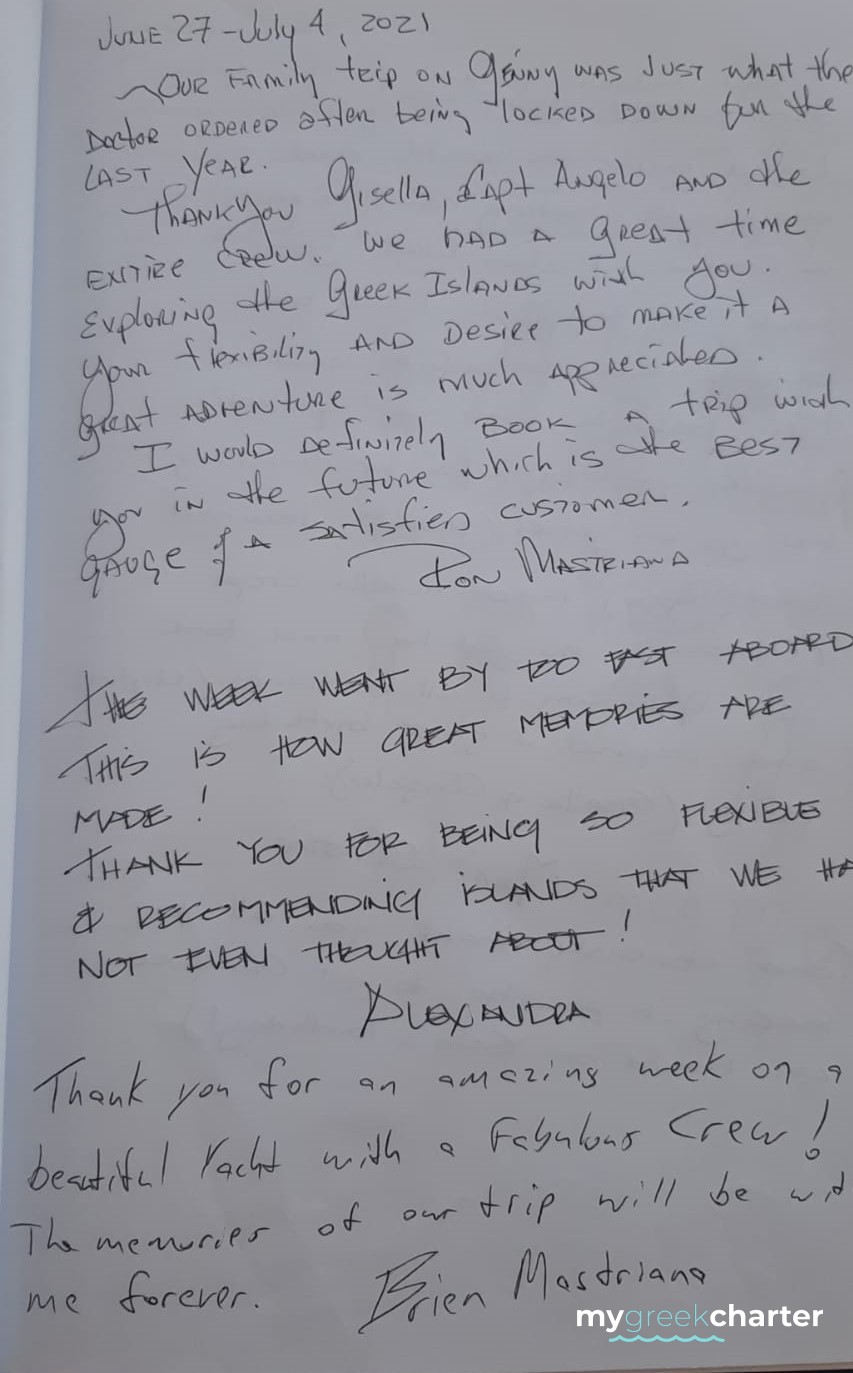 JUNE 27 - July 4, 2021
~OUR Family trip ON Genny WAS JUST what the
Doctor ORDERED after being locked DOWN for the
LAST YEAR.
ThankYou Gisella, Capt Angelo AND the
ENTIRE CREW. We HAD A great time
Exploring the Greek ISLANDS with you.
Your flexibility AND Desire to make it A
great ADVENTURE is much Appreciated.
I would Definitely BOOK A trip with
you in the future which is the BEST
gauge of A satisfied customer.
Ron MASTRIANA
THIS WEEK WENT BY TOO FAST ABOARD
THIS IS HOW GREAT MEMORIES ARE
MADE!
THANK YOU FOR BEING SO FLEXIBLE
& RECOMMENDING ISLANDS THAT WE HA
NOT EVEN THOUGHT ABOUT!
ALEXANDRA
Thank you for an amazing week on a
beautiful Yacht with a Fabulous Crew!
The memories of our trip will be wit
me forever. Brien Mastriana
mygreekcharter